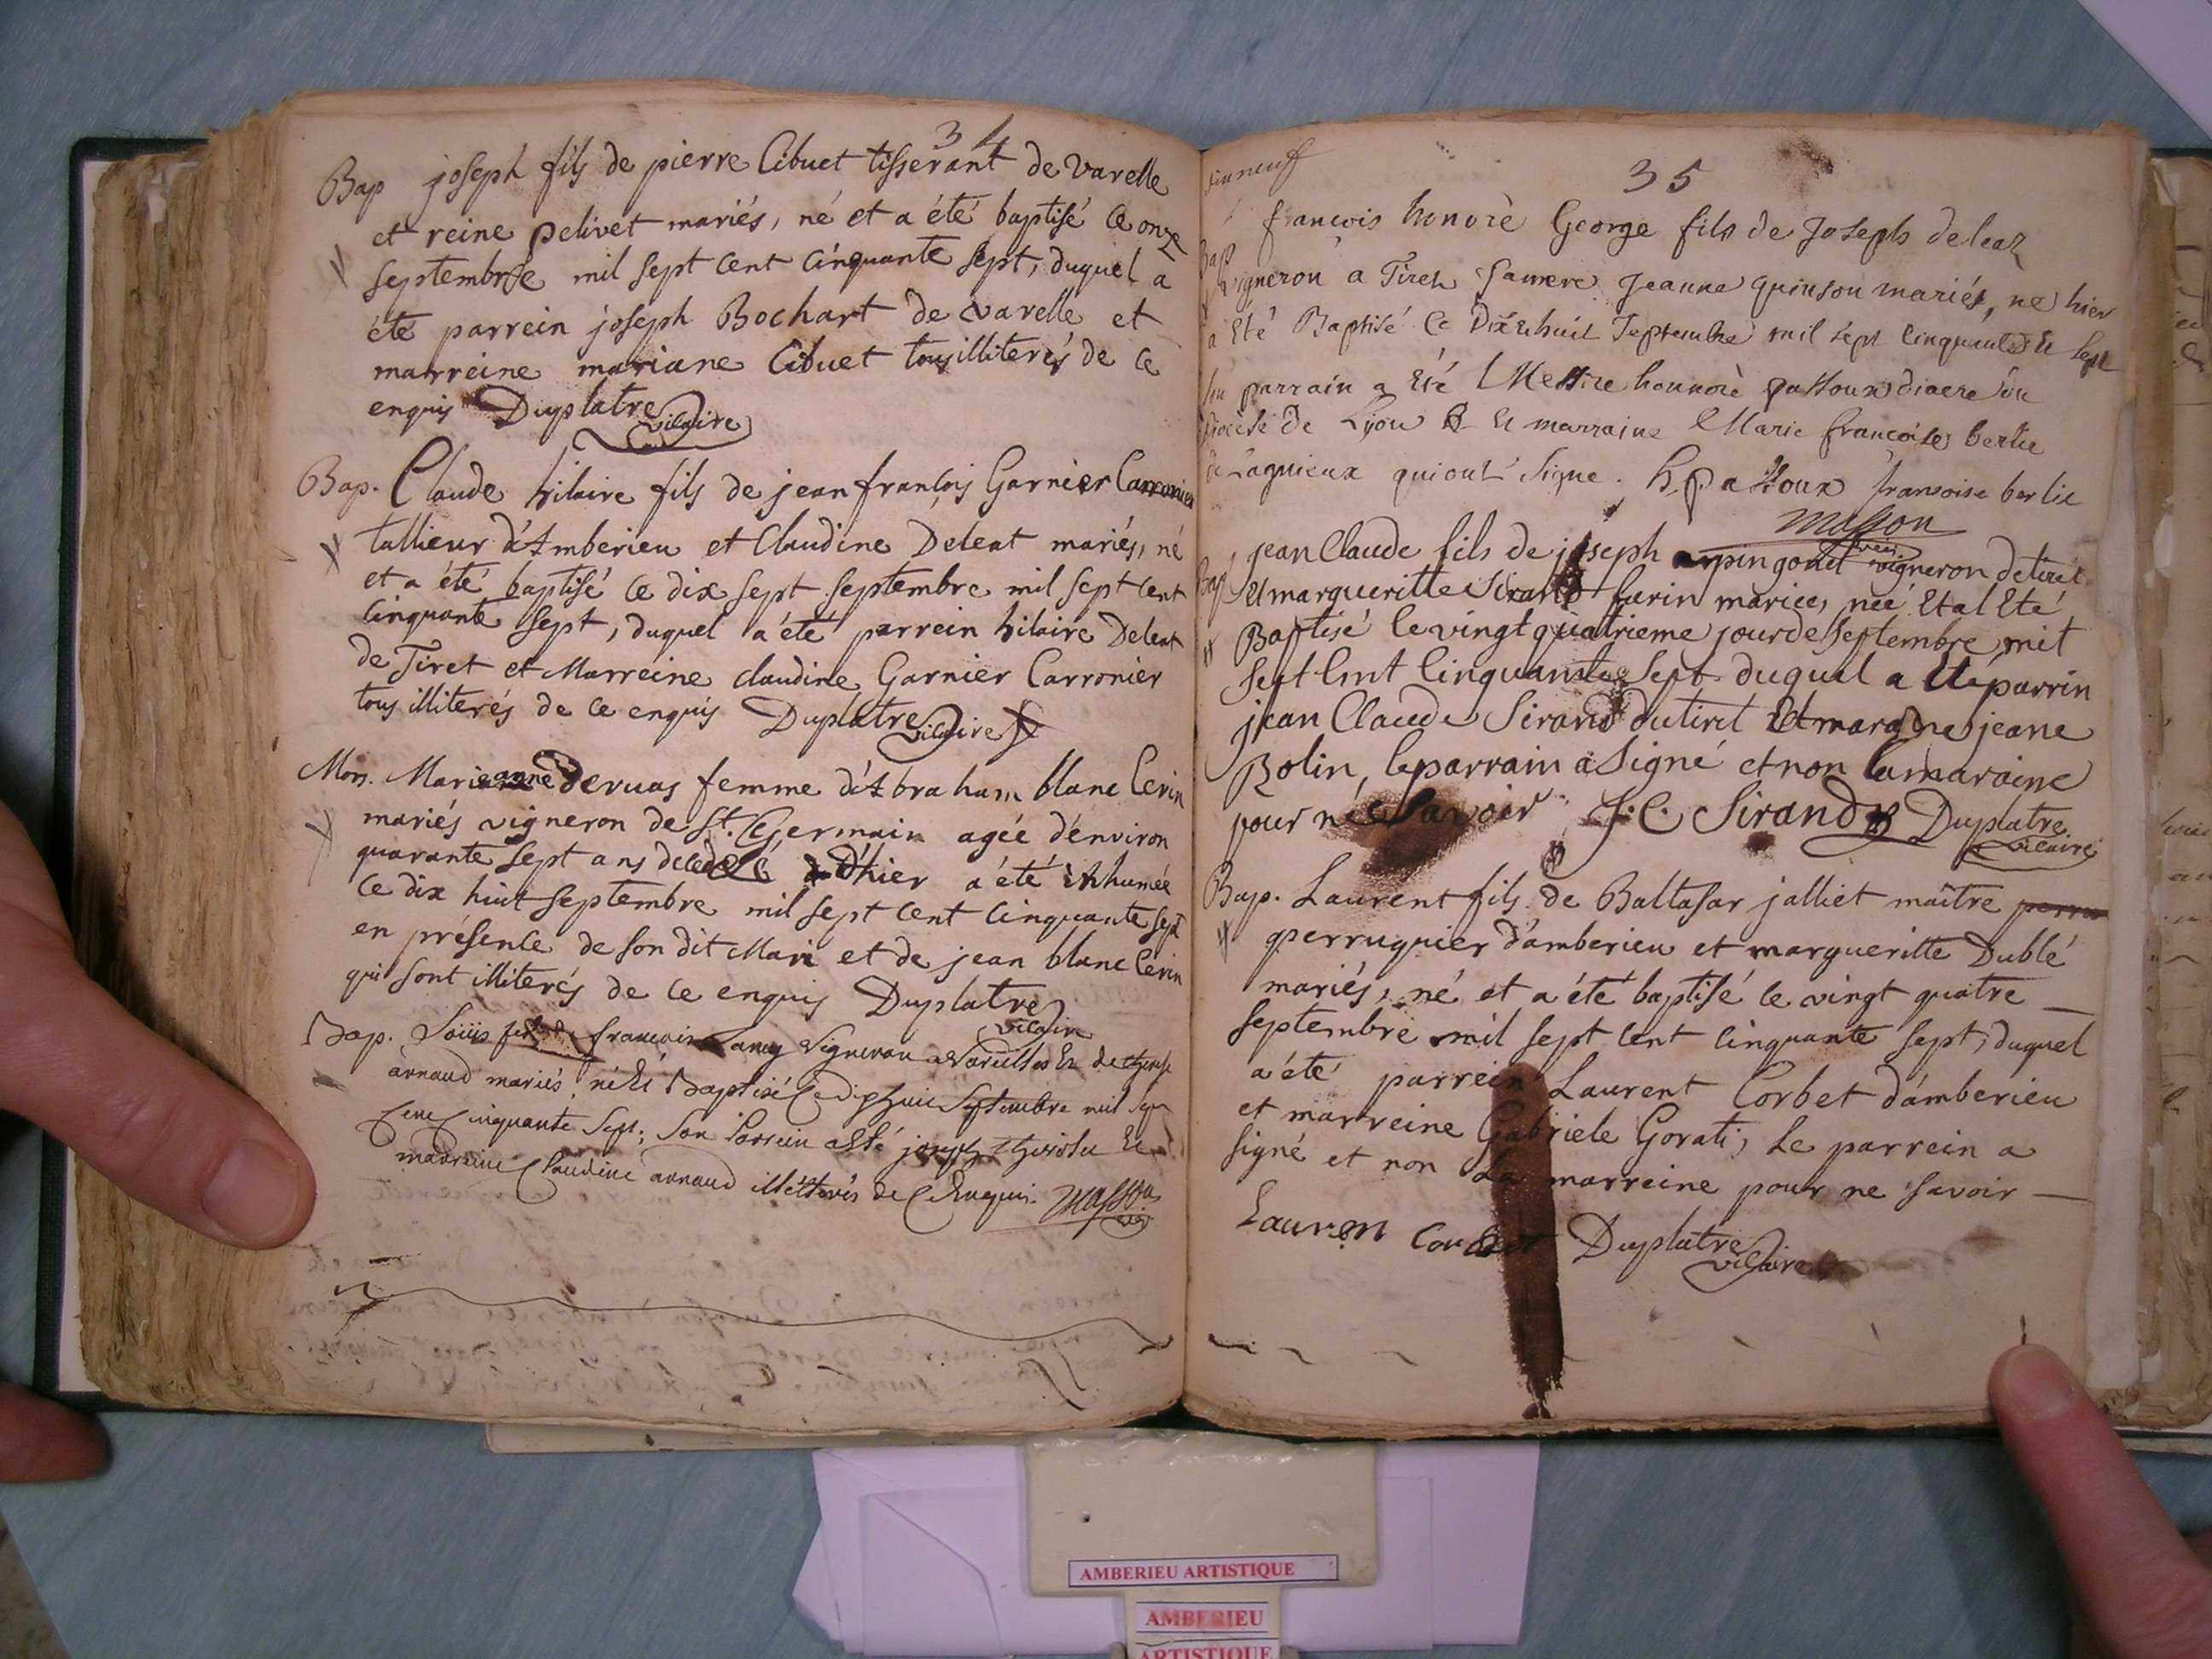 34
Bap joseph fils de pierre Cibuet tisserant de Varelle
et reine pelivet mariés, né et a été baptisé ce onze
septembre mil sept cent cinquante sept, duquel a
été parrein joseph Bochart de varelle et
marreine mariane Cibuet tous illiterés de ce
enquis Duplatre vicaire
Bap. Claude hilaire fils de jean françois Garnier Carronier
tallieur d'Amberieu et Claudine Deleat mariés, né
et a été baptisé ce dix sept septembre mil sept cent
cinquante sept, duquel a été parrein hilaire Deleat
de Tiret et Marreine claudine Garnier Carronier
tous illiterés de ce enquis Duplatre vicaire
Mors. Marieanne Dervas femme d'Abraham blanc Cerin
mariés vigneron de St. Germain agée d'environ
quarante sept ans decedé d'hier a été inhumée
ce dix huit septembre mil sept cent cinquante sept
en présence de son dit Mari et de jean blanc Cerin
qui sont illiterés de ce enquis Duplatre vicaire
Bap. Loüis françois vigneron a Vareilles Et de
arnaud mariés, né Et Baptisé Ce dixhuit Septembre mil sept
Cent Cinquante Sept; Son Parrein a Eté joseph Et
marreine Claudine arnaud illetterés de Ce Enquis. Masson
35
françois honorè George fils de Joseph deleaz
Bap
vigneron a Tiret Sa mere Jeanne quinson mariés, ne hier
a Eté Baptisé Ce Dix Et huit Septembre mil sept Cinquante Et Sept
Son parrain a Eté Messire honnorè passoux diacre du
diocèse de Lyon Et marraine Marie francoise berlie
de Lagnieux qui ont Signe. h. passoux fransoise berlie
Masson
Bap jean Claude fils de joseph pingonet vigneron de tiret
Et margueritte Sirand mariees, née Et al Eté
Baptisé le vingt quatrieme jour de Septembre mil
Sept Cent Cinquante Sept duquel a Eté parrin
jean Claude Sirand du tiret Et maraine jeane
Bolin, le parrain a Signé et non la maraine
pour ne Savoir J. C. Sirand Duplatre vicaire
Bap. Laurent fils de Baltasar jalliet maître perru
perruquier d'amberieu et margueritte Dublé
mariés, né et a été baptisé le vingt quatre
septembre mil sept cent cinquante sept, duquel
a été parrein Laurent Corbet d'amberieu
et marreine Gabriele Gorati, Le parrein a
signé et non La marreine pour ne Savoir
Lauren Duplatre vicaire
AMBERIEU ARTISTIQUE
AMBERIEU
ARTISTIQUE